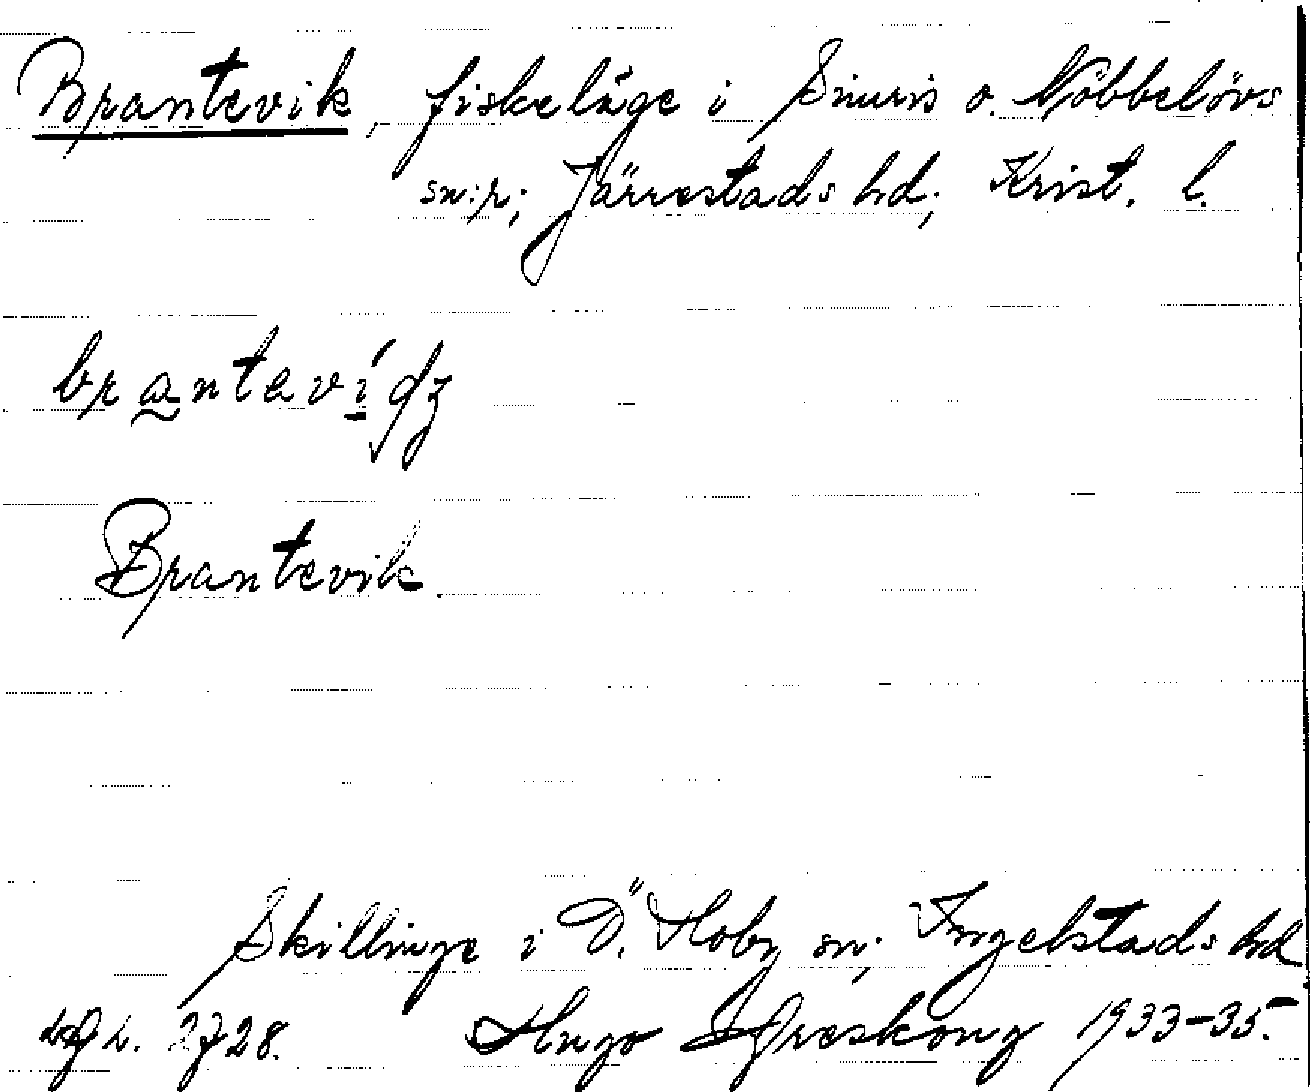 Brantevik, fiskeläge i Simris o. Nöbbelövs
sn:r; Järrestads hd; Krist. l.
brantevidʒ
Brantevik.
Skillinge i Ö. Hoby sn; Ingelstads hd
2728. Hugo Areskoug 1933-35.